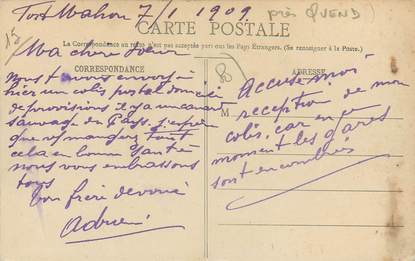 Fort Mahon 7/1 1909 près QUEND
CARTE POSTALE
La Correspondance au recto n'est pas acceptée par tous les Pays Étrangers. (Se renseigner à la Poste.)
15
80
Ma chère sœur
CORRESPONDANCE
Nous t'avons envoyé
hier un colis postal domicile
de provisions il y a un canard
sauvage du Pays, j'espère
que vs mangerez tout
cela en bonne santé
nous vous embrassons
tous
Ton frère dévoué
Adrien
ADRESSE
M
Accuse moi
reception de mon
colis, car en ce
moment les gares
sont encombrées